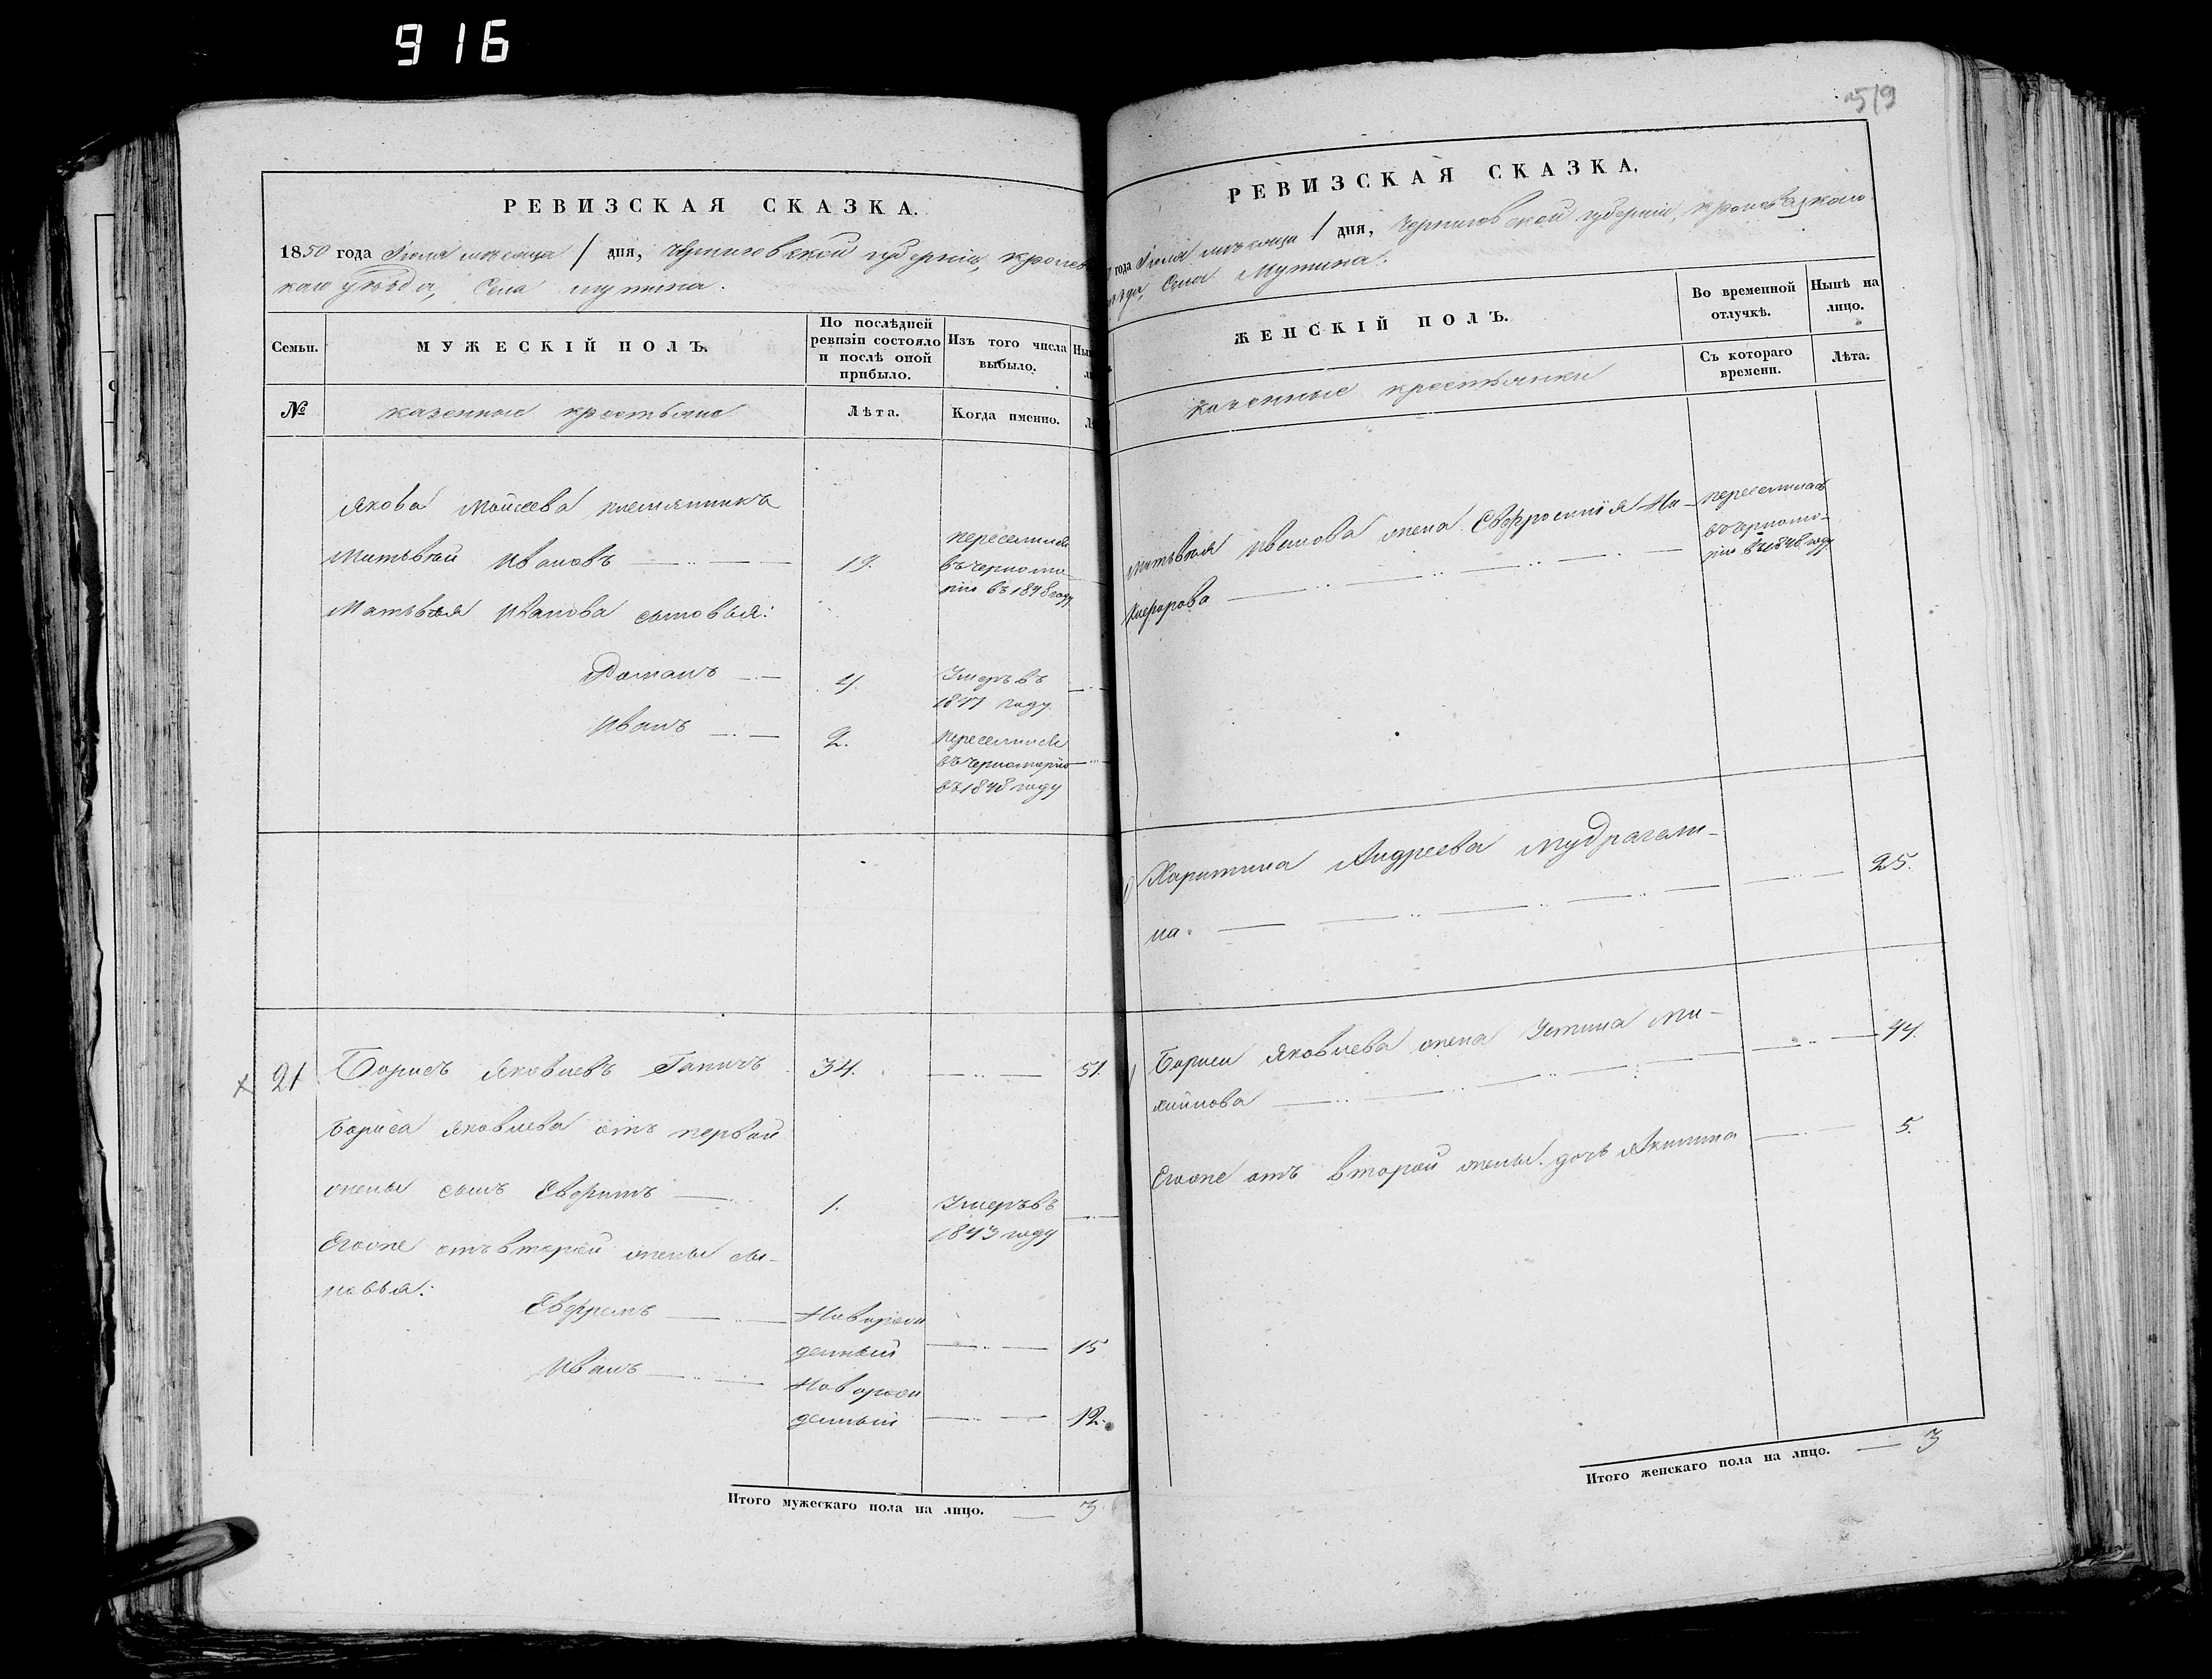 916
РЕВИЗСКАЯ СКАЗКА.
1850 года Іюля мѣсяца 1 дня, Черниговской губерніи, Кролев
каго уѣзда, Села Мутина.
Семьи.
МУЖЕСКІЙ ПОЛЪ.
По послѣдней
ревизіи состояло
и послѣ оной
прибыло.
Изъ того числа
выбыло.
№
казенные крестьяне
Лѣта.
Когда именно.
Якова Моисеева племянникъ
Матьвѣй Ивановъ
19.
переселился
въ черномо
рію въ 1848 году
Матьвѣя Иванова сыновья:
Романъ
4.
Умеръ въ
1847 году
Иванъ
2.
переселился
въ черноморію
въ 1848 году
21
Борисъ Яковлевъ Ганичъ
34.
51.
Бориса Яковлева отъ первой
жены сынъ
1.
Умеръ въ
1843 году
Егоже отъ второй жены сы-
новья:
Евфремъ
Новорож
денный
15
Иванъ
Новорож
денный
12.
Итого мужескаго пола на лицо. 3
519
РЕВИЗСКАЯ СКАЗКА.
года Іюля мѣсяца 1 дня, Черниговской губерніи, Кролевѣцкаго
уѣзда, Села Мутина.
ЖЕНСКІЙ ПОЛЪ.
Во временной
отлучкѣ.
Нынѣ на
лицо.
казенные крестьянки
Съ котораго
времени.
Лѣта.
Матьвѣя Иванова жена Евфросинія Ни-
кифорова
переселилась
въ черномо-
рію въ 1848 году
Харитина Андреева Мудрагели-
на.
25.
Бориса Яковлева жена Устина Ми-
44.
Егоже отъ второй жены дочь Акилина
5.
Итого женскаго пола на лицо. 3